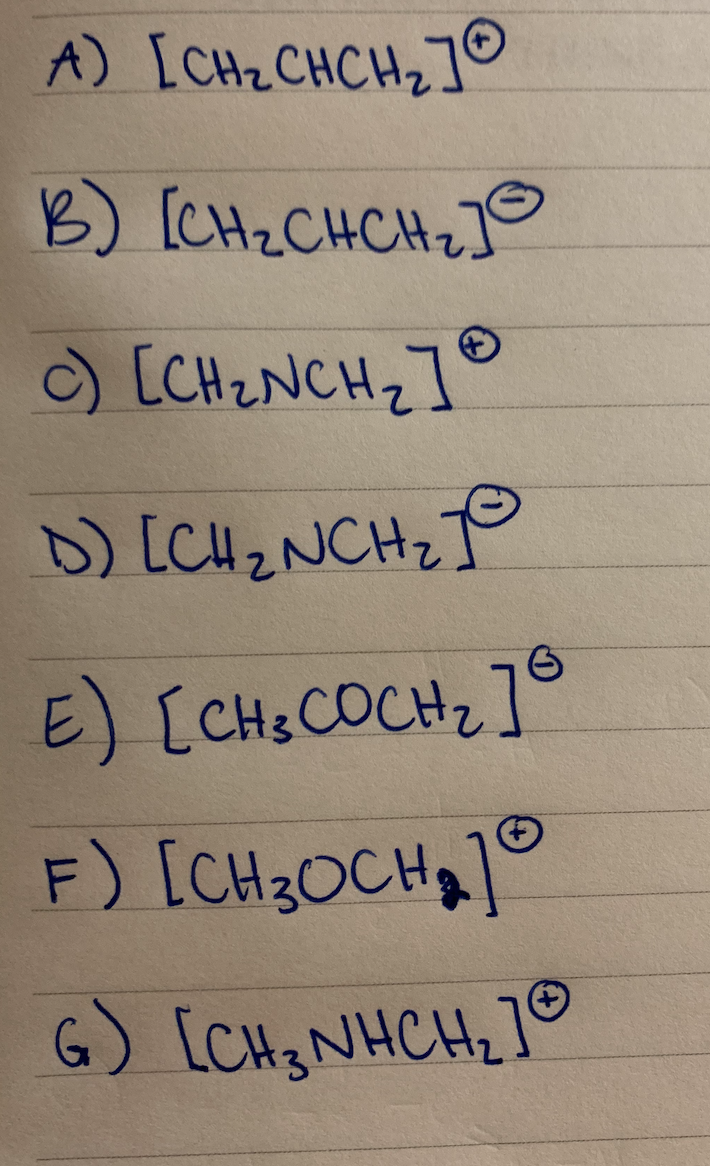 A) [CH₂CHCH₂]⊕
B) [CH₂CHCH₂]⊖
C) [CH₂NCH₂]⊕
D) [CH₂NCH₂]⊖
E) [CH₃COCH₂]⊖
F) [CH₃OCH₂]⊕
G) [CH₃NHCH₂]⊕